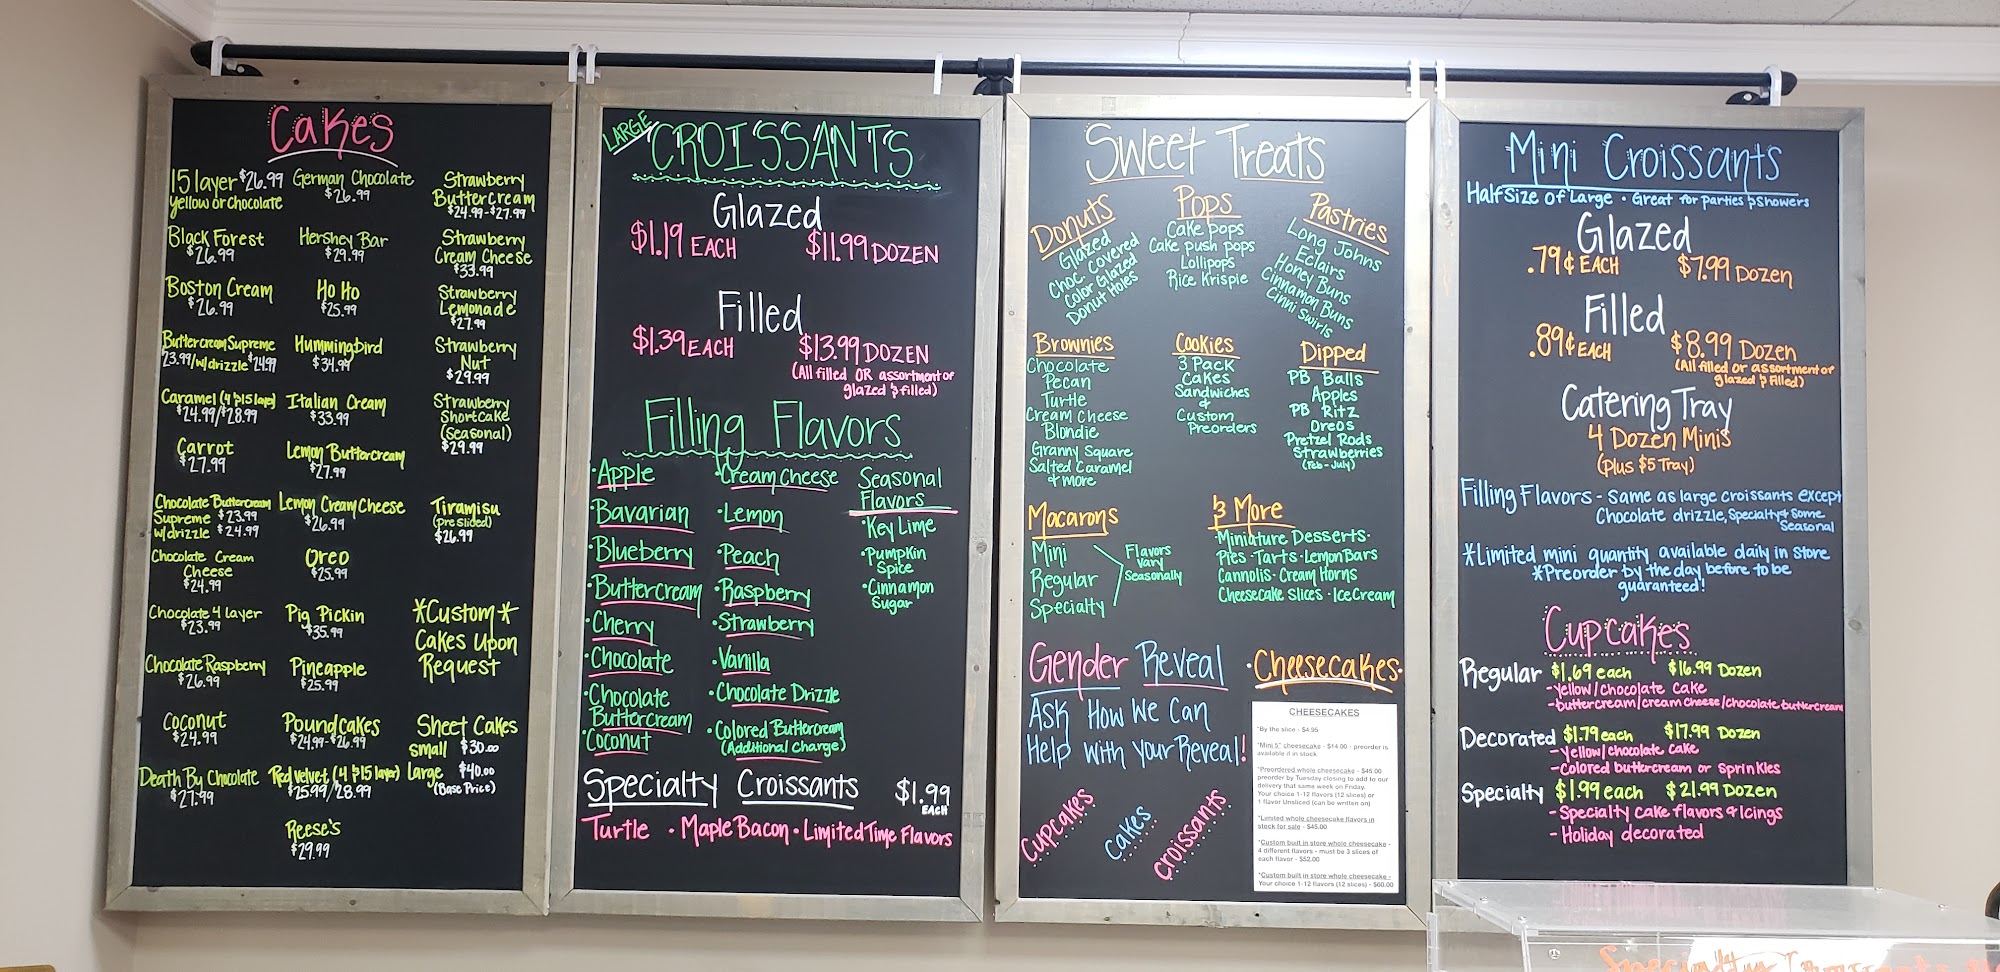 Cakes
15 layer $26.99
yellow or chocolate
Black Forest
$26.99
Boston Cream
$26.99
Buttercream Supreme
23.99/w/drizzle $24.99
Caramel (4 & 15 layer)
$24.99/$28.99
Carrot
$27.99
Chocolate Buttercream
Supreme $23.99
w/drizzle $24.99
Chocolate Cream
Cheese
$24.99
Chocolate 4 layer
$23.99
Chocolate Raspberry
$26.99
Coconut
$24.99
Death By Chocolate
$27.99
German Chocolate
$26.99
Hershey Bar
$29.99
Ho Ho
$25.99
Hummingbird
$34.99
Italian Cream
$33.99
Lemon Buttercream
$27.99
Lemon Cream Cheese
$26.99
Oreo
$25.99
Pig Pickin
$35.99
Pineapple
$25.99
Poundcakes
$24.99-$26.99
Red velvet (4 & 15 layer)
$25.99/28.99
Reese's
$29.99
Strawberry
Buttercream
$24.99-$27.99
Strawberry
Cream Cheese
$33.99
Strawberry
Lemonade
$27.99
Strawberry
Nut
$29.99
Strawberry
Shortcake
(Seasonal)
$29.99
Tiramisu
(pre sliced)
$26.99
*Custom*
Cakes Upon
Request
Sheet Cakes
Small $30.00
Large $40.00
(Base Price)
LARGE CROISSANTS
Glazed
$1.19 EACH $11.99 DOZEN
Filled
$1.39 EACH $13.99 DOZEN
(All filled OR assortment of
glazed & filled)
Filling Flavors
·Apple
·Bavarian
·Blueberry
·Buttercream
·Cherry
·Chocolate
·Chocolate
Buttercream
·Coconut
·Cream Cheese
·Lemon
·Peach
·Raspberry
·Strawberry
·Vanilla
·Chocolate Drizzle
·Colored Buttercream
(Additional charge)
Seasonal
Flavors
·Key Lime
·Pumpkin
Spice
·Cinnamon
Sugar
Specialty Croissants $1.99
EACH
Turtle · Maple Bacon · Limited Time Flavors
Sweet Treats
Donuts
Glazed
Choc Covered
Color Glazed
Donut Holes
Pops
Cake pops
Cake push pops
Lollipops
Rice Krispie
Pastries
Long Johns
Eclairs
Honey Buns
Cinnamon Buns
Cinni Swirls
Brownies
Chocolate
Pecan
Turtle
Cream Cheese
Blondie
Granny Square
Salted Caramel
& more
Cookies
3 Pack
Cakes
Sandwiches
&
Custom
Preorders
Dipped
PB Balls
Apples
PB Ritz
Oreos
Pretzel Rods
Strawberries
(Feb-July)
Macarons
Mini
Regular
Specialty
Flavors
Vary
Seasonally
& More
·Miniature Desserts·
Pies·Tarts·Lemon Bars
Cannolis·Cream Horns
Cheesecake Slices·Ice Cream
Gender Reveal
Ask How We Can
Help With Your Reveal!
Cupcakes
Cakes
Croissants
·Cheesecakes·
CHEESECAKES
*By the slice - $4.95
*Mini 5" cheesecake - $14.00 - preorder is
available if in stock
*Preordered whole cheesecake - $45.00
preorder by Tuesday closing to add to our
delivery that same week on Friday.
Your choice 1-12 flavors (12 slices) or
1 flavor Unsliced (can be written on)
*Limited whole cheesecake flavors in
stock for sale - $45.00
*Custom built in store whole cheesecake -
4 different flavors - must be 3 slices of
each flavor - $52.00
*Custom built in store whole cheesecake -
Your choice 1-12 flavors (12 slices) - $60.00
Mini Croissants
Half Size of Large · Great for parties & Showers
Glazed
.79¢ EACH $7.99 Dozen
Filled
.89¢ EACH $8.99 Dozen
(All filled or assortment of
glazed & Filled)
Catering Tray
4 Dozen Minis
(plus $5 Tray)
Filling Flavors - same as large croissants except
Chocolate drizzle, Specialty & some
Seasonal
*Limited mini quantity available daily in store
*Preorder by the day before to be
guaranteed!
Cupcakes
Regular $1.69 each $16.99 Dozen
-yellow/chocolate cake
-buttercream/cream cheese/chocolate buttercream
Decorated $1.79 each $17.99 Dozen
-yellow/chocolate cake
-Colored buttercream or sprinkles
Specialty $1.99 each $21.99 Dozen
-Specialty cake flavors & Icings
-Holiday decorated